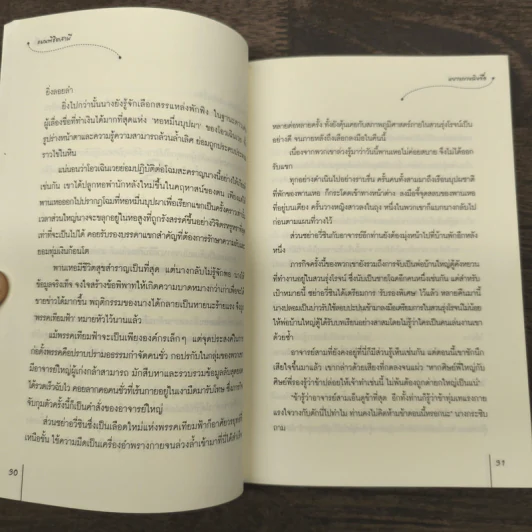 ยิ่งลอยลำ
ยิ่งไปกว่านั้นนางยังรู้จักเลือกสรรแหล่งพักพิง ในฐานะ
ผู้เลื่องชื่อที่ทำเงินได้มากที่สุดแห่ง 'หอหมื่นบุปผา' ของโอวเฉิน
รูปร่างหน้าตาและความรู้ความสามารถล้วนล้ำเลิศ ย่อมถูกประคบประหงม
ราวไข่ในหิน
แน่นอนว่าโอวเฉินเวยย่อมปฏิบัติต่อโฉมสะคราญนางนี้อย่างดี
เช่นกัน เขาได้ปลูกหอพำนักหลังใหม่ขึ้นในคฤหาสน์ของตน
พานเหอออกไปปรากฏโฉมที่หอหมื่นบุปผาเพื่อเรียกแขกเป็นครั้งคราวเท่านั้น
เวลาส่วนใหญ่นางจะขลุกอยู่ในหอสูงที่ถูกรังสรรค์ขึ้นอย่างวิจิตร
เท่าที่จะเป็นไปได้ คอยรับรองบรรดาแขกสำคัญที่ต้องการรักษาความลับและ
ยอมทุ่มเงินก้อนโต
พานเหอมีชีวิตสุขสำราญเป็นที่สุด แต่นางกลับไม่รู้จักพอ
ข้อมูลจริงเท็จ จงใจสร้างข้อพิพาทให้เกิดความบาดหมาง
รายข่าวได้มากขึ้น พฤติกรรมของนางได้กลายเป็นหายนะร้ายแรง
พรรคเทียมฟ้า หมายหัวไว้นานแล้ว
แม้พรรคเทียมฟ้าจะเป็นเพียงองค์กรเล็กๆ แต่จุดประสงค์ในการ
ก่อตั้งพรรคคือปราบปรามอธรรมกำจัดคนชั่ว กอปรกับในกลุ่มของพวกเขา
มีอาจารย์ใหญ่ผู้เก่งกล้าสามารถ มักสืบหาและรวบรวมข้อมูลลับสุดยอด
ได้รวดเร็วฉับไว คอยลากคอคนชั่วที่เร้นกายอยู่ในเงามืดมารับโทษ
จับกุมตัวครั้งนี้ก็เป็นคำสั่งของอาจารย์ใหญ่
ส่วนซย่าอวี่ซินซึ่งเป็นเลือดใหม่แห่งพรรคเทียมฟ้าก็อาศัยกลยุทธ์
เหนือชั้น ใช้ความมืดเป็นเครื่องอำพรางกายจนล่วงล้ำเข้ามาที่นี่ได้สำเร็จ
30
หลายต่อหลายครั้ง ทั้งยังคุ้นเคยกับสภาพภูมิศาสตร์ภายในสวนรุ่งโรจน์เป็น
อย่างดี จนภายหลังถึงเลือกลงมือในคืนนี้
เนื่องจากพวกเขาล่วงรู้มาว่าวันนี้พานเหอไม่ค่อยสบาย จึงไม่ได้ออก
รับแขก
ทุกอย่างดำเนินไปอย่างราบรื่น ครั้นคนทั้งสามมาถึงเรือนบุปผชาติ
ที่พักของพานเหอ ก็กระโดดเข้าทางหน้าต่าง ลงมือจี้จุดสลบของพานเหอ
ที่อยู่บนเตียง ครั้นวางหญิงสาวลงในถุง หนึ่งในพวกเขาก็แบกนางกลับไป
ก่อนตามแผนที่วางไว้
ส่วนซย่าอวี่ซินกับอาจารย์อีกท่านยังต้องมุ่งหน้าไปที่บ้านพักอีกหลัง
หนึ่ง
ภารกิจครั้งนี้ของพวกเขายังรวมถึงการจับเป็นพ่อบ้านใหญ่ตู้คังหยวน
ที่ทำงานอยู่ในสวนรุ่งโรจน์ ซึ่งนับเป็นชายโฉดอีกคนหนึ่งเช่นกัน แต่สำหรับ
เป้าหมายนี้ ซย่าอวี่ซินได้เตรียมการ 'รับรองพิเศษ' ไว้แล้ว หลายคืนมานี้
นางปลอมเป็นบ่าวรับใช้ลอบปะปนเข้ามาลงมือเตรียมการในสวนรุ่งโรจน์ไม่น้อย
ให้พ่อบ้านใหญ่ตู้ได้รับบทเรียนอย่างสาสมโดยไม่รู้ว่าใครเป็นคนเล่นงานเขา
ด้วยซ้ำ
อาจารย์สามที่ยังคงอยู่ที่นี่ก็มีส่วนรู้เห็นเช่นกัน แต่ตอนนี้เขาชักนึก
เสียใจขึ้นมาแล้ว เขากล่าวด้วยเสียงที่กดลงจนแผ่ว "หากศิษย์พี่ใหญ่กับ
ศิษย์พี่รองรู้ว่าข้าปล่อยให้เจ้าทำเช่นนี้ ไม่พ้นต้องถูกด่ายกใหญ่เป็นแน่"
"ข้ารู้ว่าอาจารย์สามเอ็นดูข้าที่สุด อีกทั้งท่านก็รู้ว่าข้าทุ่มเทแรงกาย
แรงใจวางกับดักนี้ไปเท่าไร ท่านคงไม่คิดห้ามข้าตอนนี้หรอกนะ" นางกระซิบ
ถาม
31